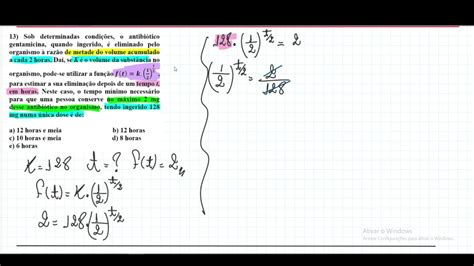 13) Sob determinadas condições, o antibiótico
gentamicina, quando ingerido, é eliminado pelo
organismo à razão de metade do volume acumulado
a cada 2 horas. Daí, se K é o volume da substância no
organismo, pode-se utilizar a função f(t) = k.(1/2)^(t/2),
para estimar a sua eliminação depois de um tempo t,
em horas. Neste caso, o tempo mínimo necessário
para que uma pessoa conserve no máximo 2 mg
desse antibiótico no organismo, tendo ingerido 128
mg numa única dose é de:
a) 12 horas e meia b) 12 horas
c) 10 horas e meia d) 8 horas
e) 6 horas
K=128 t=? f(t)=2
f(t)=K.(1/2)^(t/2)
2=128.(1/2)^(t/2)
128.(1/2)^(t/2) = 2
(1/2)^(t/2) = 2/128
Ativar o Windows
Acesse Configurações para ativar o Windows.